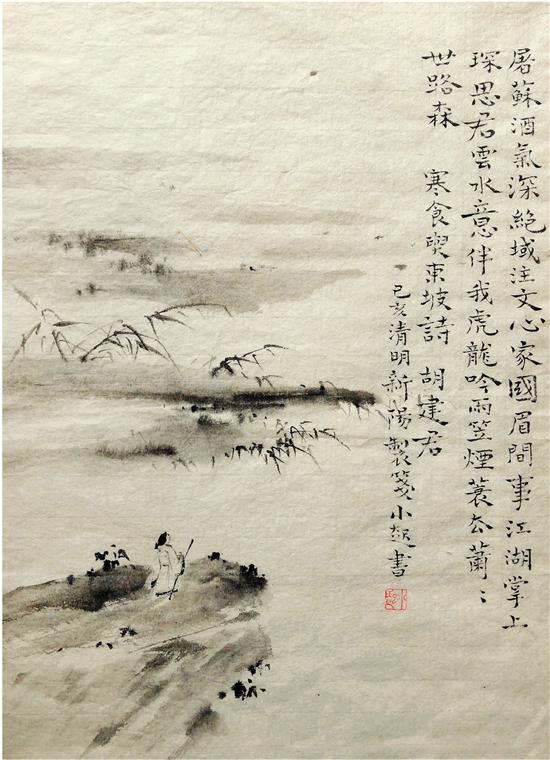 屠蘇酒氣深絕域注文心家國眉間事江湖掌上
琛思君雲水意伴我虎龍吟雨笠煙蓑去蕭〻
世路森 寒食喫東坡詩 胡建君
己亥清明新陽製箋小書